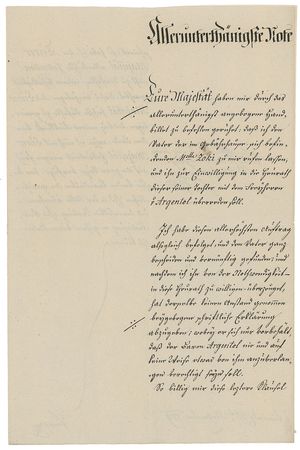 Allerunterthänigste Note
Eure Majestät haben mir durch das
allerunterthänigst angebogene Hand,
billet zu befehlen geruhet: daß ich den
Vater der im Gebährhause, sich befin,
denden Mlle Zoki zu mir rufen lassen,
und ihn zur Einwilligung in die Heurath
dieser seiner Tochter mit dem Freyherrn
d'Argentol überreden soll.
Ich habe diesen allerhöchsten Auftrag
alsogleich befolget, und den Vater ganz
bescheiden und vernünftig gefunden; und
nachdem ich ihn von der Nothwendigkeit
in diese Heurath zu willigen überzeuget,
hat derselbe keinen Anstand genommen
beygebogene schriftliche Erklärung
abzugeben; wobey er sich nur vorbehalt,
daß der Baron Argentol nie und auf
keine Weise etwas von ihm anzuverlan,
gen berechtigt seyn soll.
So billig mir diese letztere Klausel